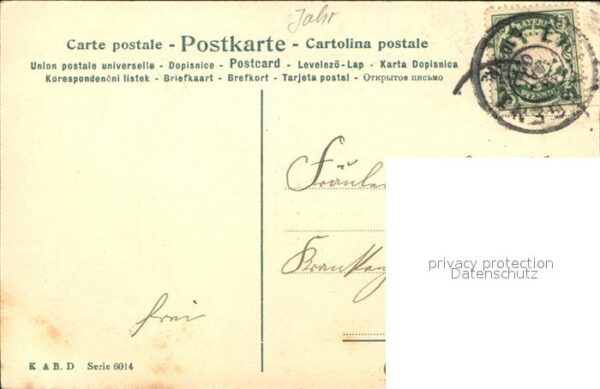 Jahr
Carte postale - Postkarte - Cartolina postale
Union postale universelle - Dopisnice - Postcard - Levelező-Lap - Karta Dopisnica
Korespondenční lístek - Briefkaart - Brefkort - Tarjeta postal - Открытое письмо
BAYERN 5
Fräulei
privacy protection
Datenschutz
frei
K & B. D Serie 6014